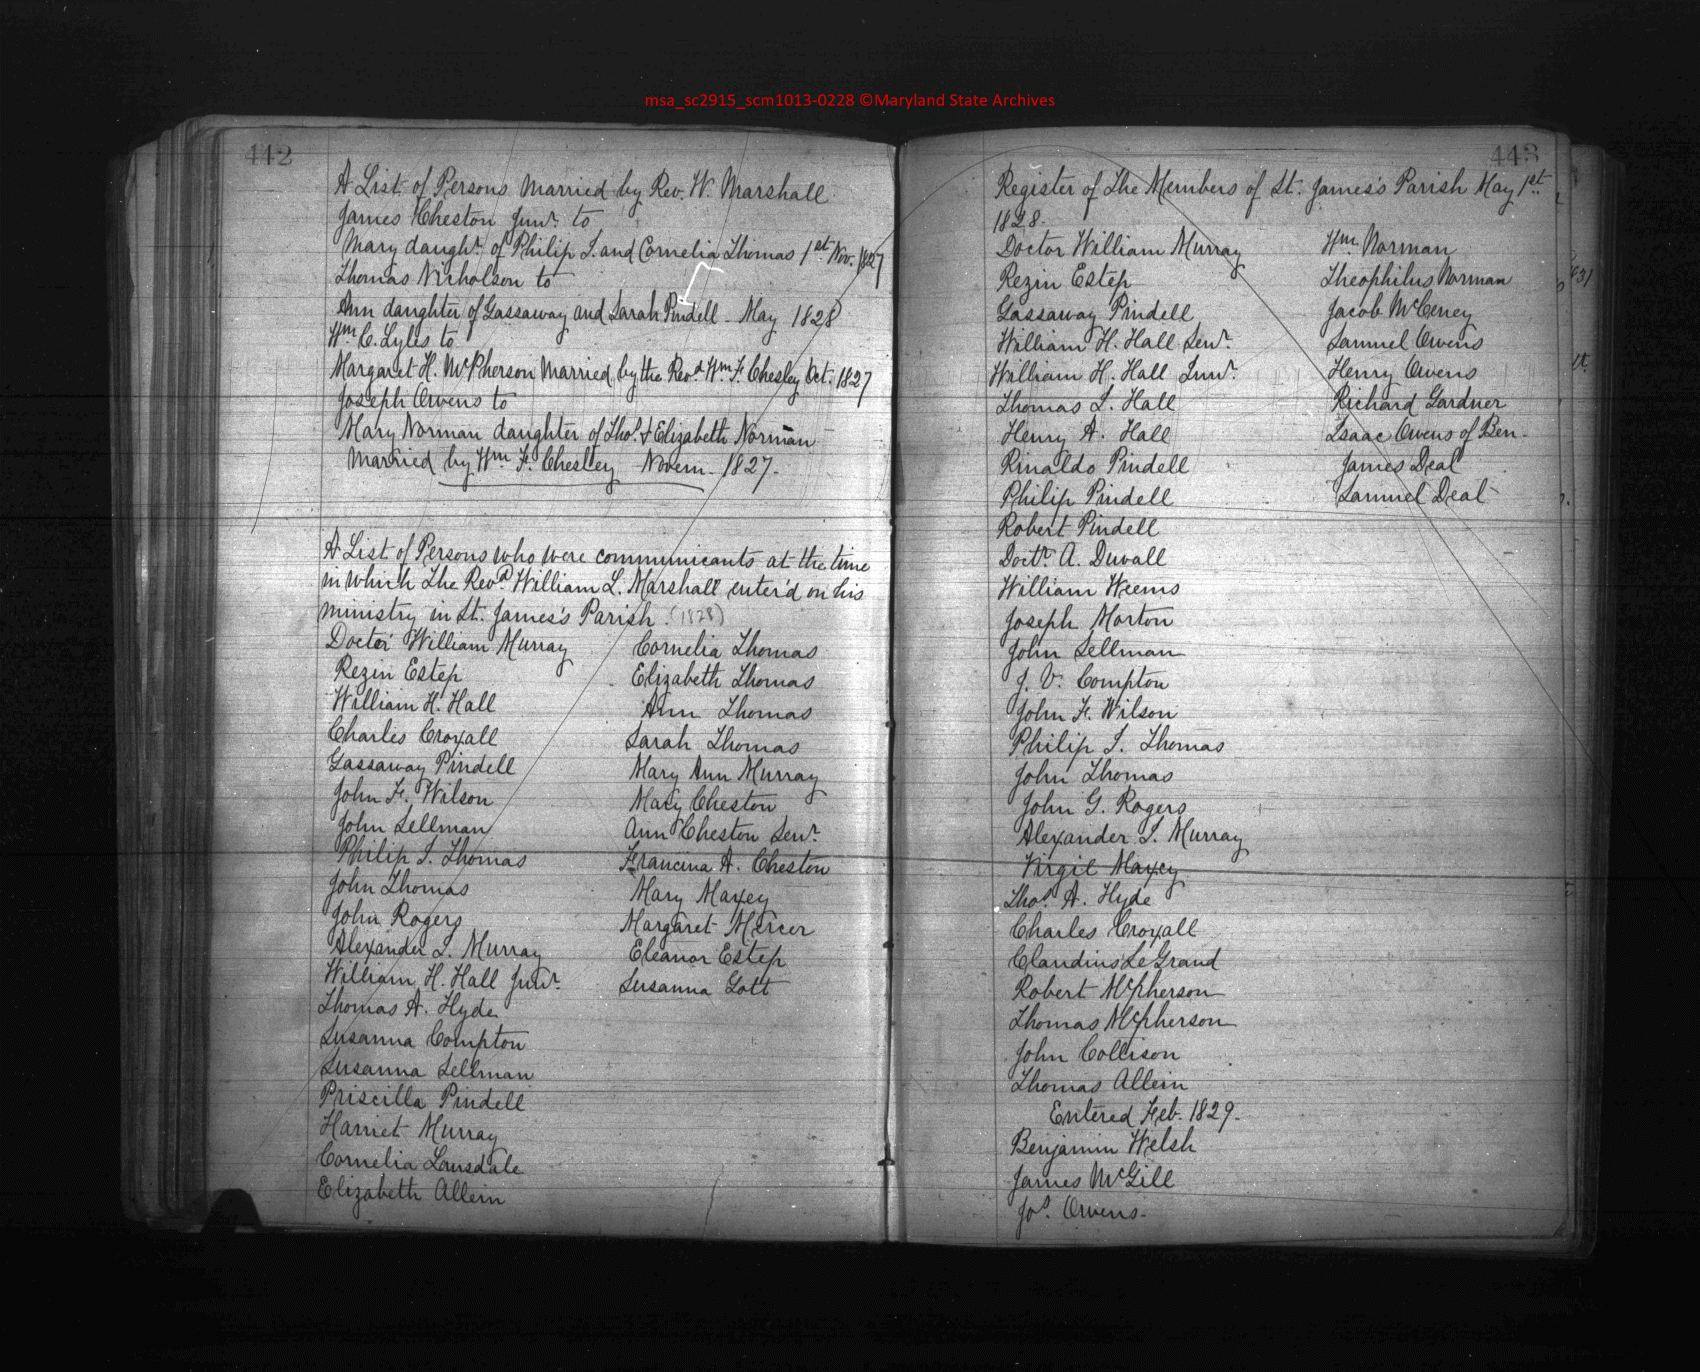 msa_sc2915_scm1013-0228 ©Maryland State Archives
442
A List of Persons Married by Rev. W. Marshall
James Cheston Junr. to
Mary daughr. of Philip J. and Cornelia Thomas 1st. Nov. 1827
Thomas Nicholson to
Ann daughter of Gassaway and Sarah Pindell - May 1828
Wm. C. Lyles to
Margaret H. McPherson Married by the Revd Wm. F. Chesley Oct. 1827
Joseph Owens to
Mary Norman daughter of Thos. & Elizabeth Norman
Married by Wm. F. Chesley Novem - 1827.
A List of Persons who were communicants at the time
in which The Revd William L. Marshall enter'd on his
ministry in St. James's Parish. (1828)
Doctor William Murray
Rezin Estep
William H. Hall
Charles Croxall
Gassaway Pindell
John F. Wilson
John Sellman
Philip J. Thomas
John Thomas
John Rogers
Alexander J. Murray
William H. Hall Junr.
Thomas A. Hyde
Susanna Compton
Susanna Sellman
Priscilla Pindell
Harriet Murray
Cornelia Lansdale
Elizabeth Allein
Cornelia Thomas
Elizabeth Thomas
Ann Thomas
Sarah Thomas
Mary Ann Murray
Mary Cheston
Ann Cheston Senr.
Francina A. Cheston
Mary Maxey
Margaret Mercer
Eleanor Estep
Susanna Gott
443
Register of The Members of St. James's Parish May 1st.
1828.
Doctor William Murray
Rezin Estep
Gassaway Pindell
William H. Hall Senr.
William H. Hall Junr.
Thomas J. Hall
Henry A. Hall
Rinaldo Pindell
Philip Pindell
Robert Pindell
Doctr. A. Duvall
William Weems
Joseph Morton
John Sellman
J. V. Compton
John F. Wilson
Philip J. Thomas
John Thomas
John G. Rogers
Alexander J. Murray
Virgil Maxcy
Thos. A. Hyde
Charles Croxall
Claudius Le Grand
Robert McPherson
Thomas McPherson
John Collison
Thomas Allein
Entered Feb. 1829.
Benjamin Welsh
James McGill
Jos. Owens.
Wm. Norman
Theophilus Norman
Jacob McCeney
Samuel Owens
Henry Owens
Richard Gardner
Isaac Owens of Ben.
James Deal
Samuel Deal